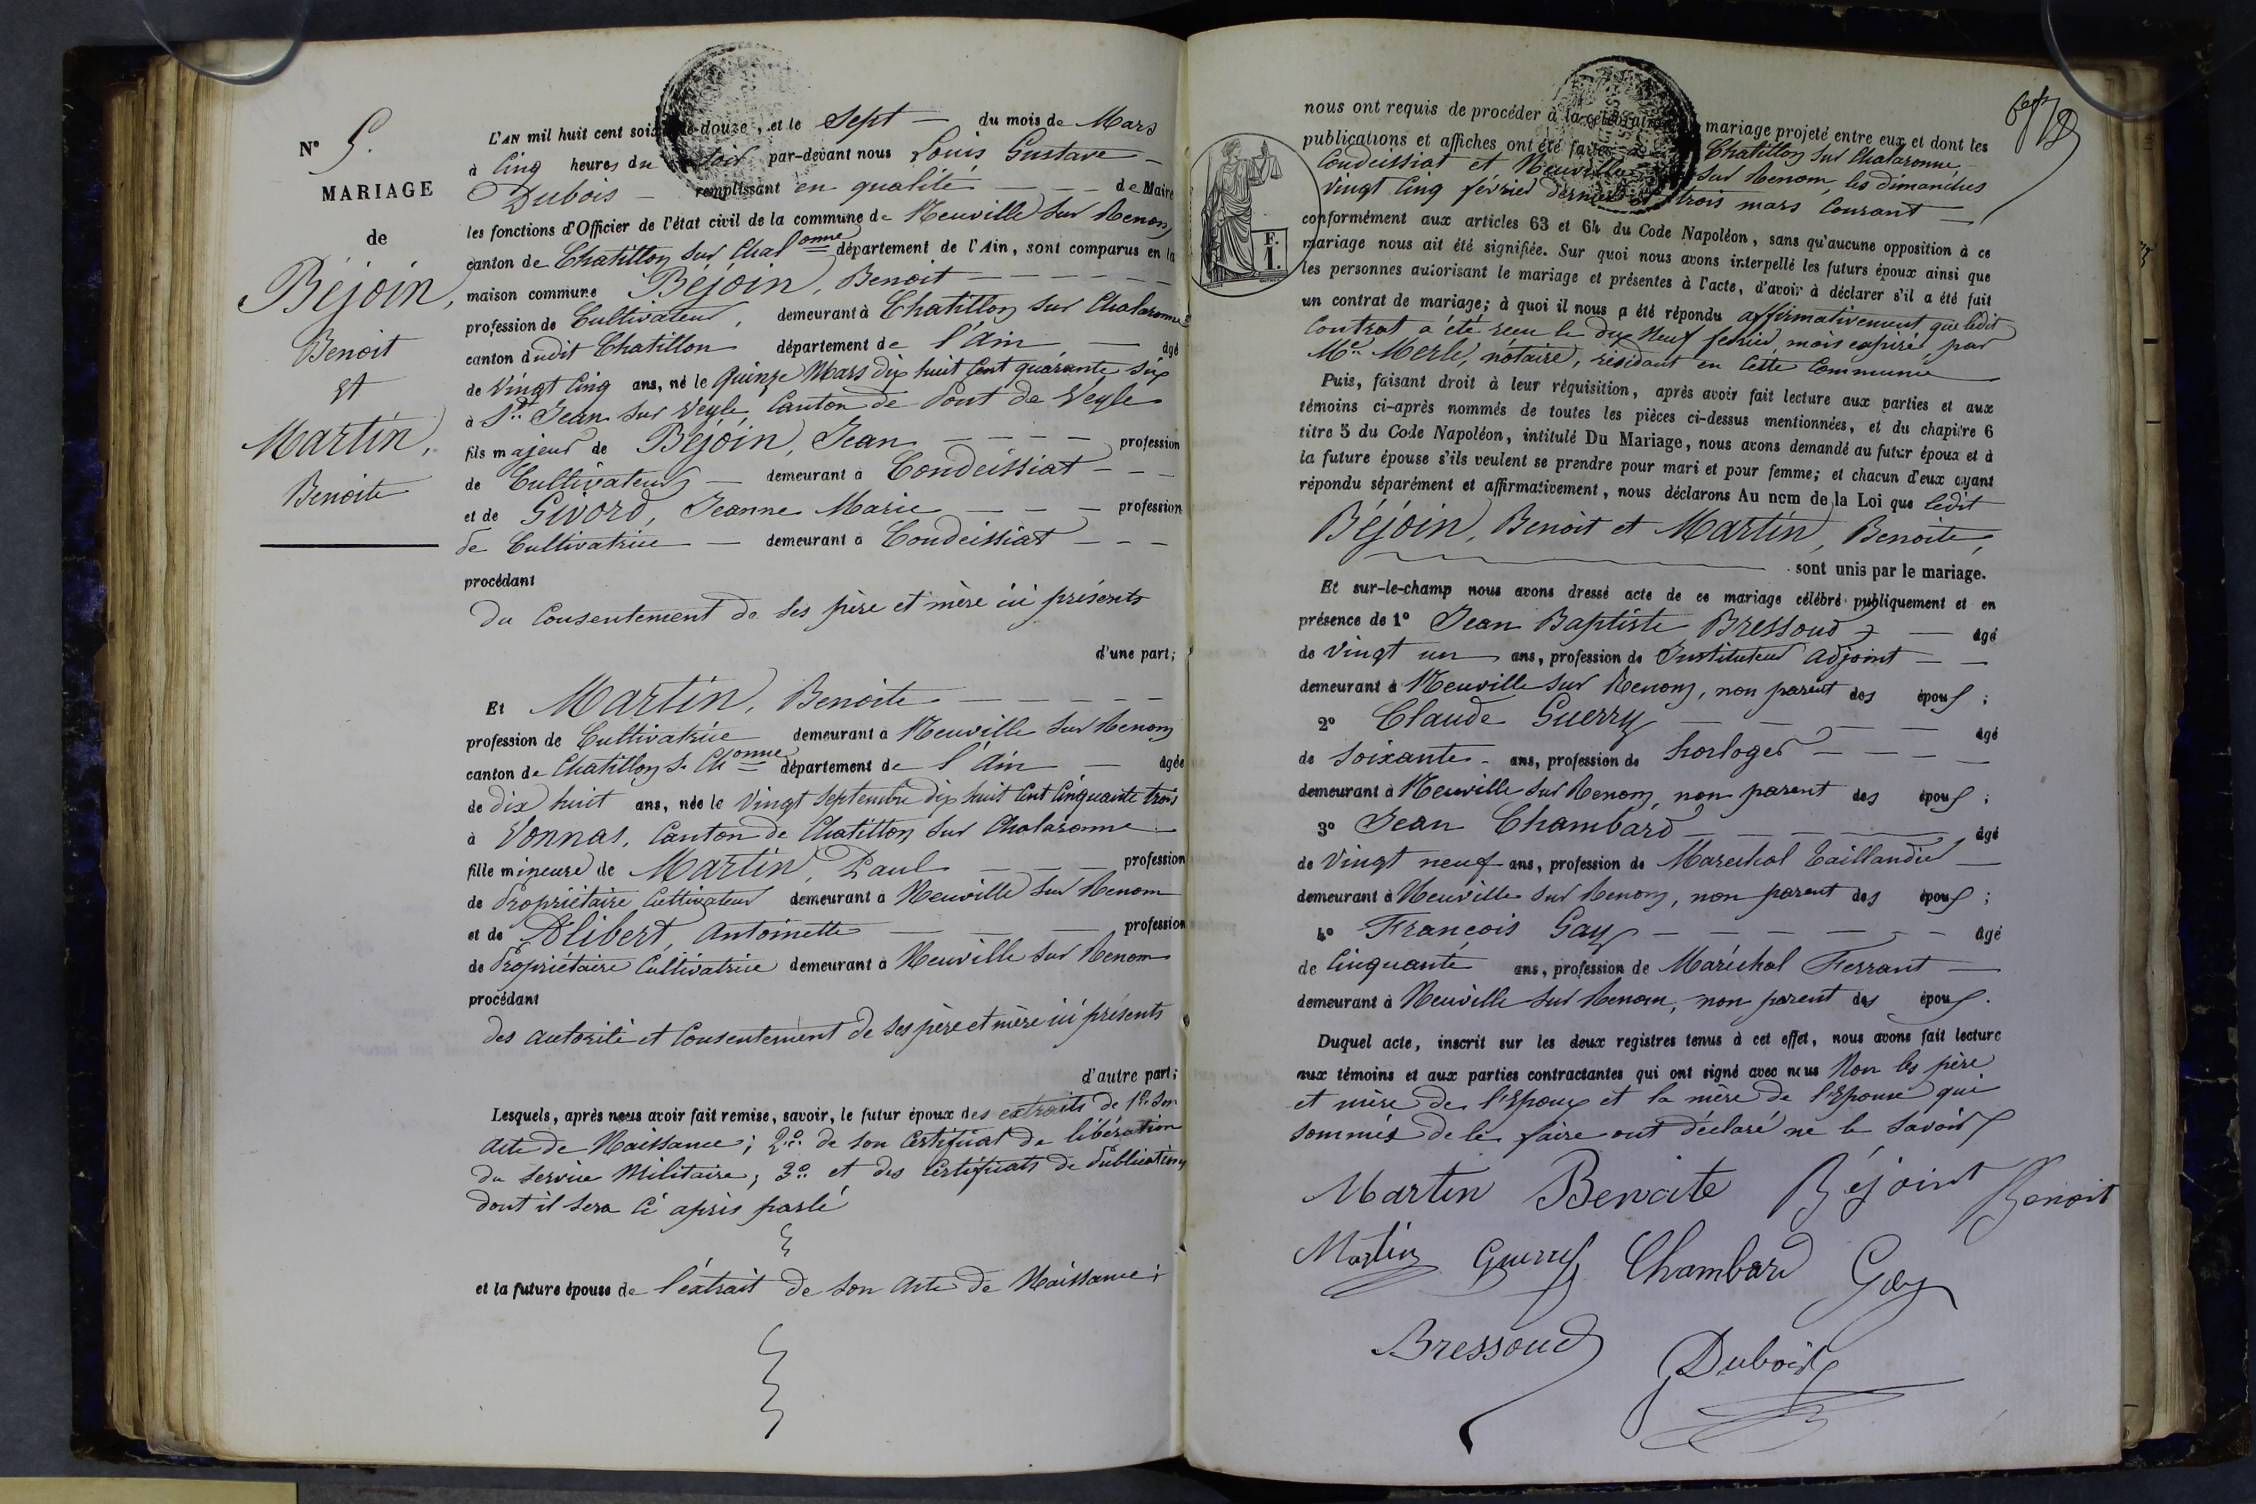 N° 5.
MARIAGE
de
Béjoin,
Benoit
et
Martin,
Benoite
L'AN mil huit cent soixante-douze, et le Sept — du mois de Mars
à Cinq heures du Soir par-devant nous Louis Gustave —
Dubois — remplissant en qualité — — — de Maire
les fonctions d'Officier de l'état civil de la commune de Neuville sur Renom
canton de Chatillon sur Chalaronne département de l'Ain, sont comparus en la
maison commune Béjoin, Benoit — — — — —
profession de Cultivateur, demeurant à Chatillon sur Chalaronne
canton dudit Chatillon département de l'Ain — âgé
de Vingt Cinq ans, né le Quinze Mars dix huit Cent quarante Six
à St. Jean sur Veyle, Canton de Pont de Veyle
fils majeur de Béjoin, Jean — — — — profession
de Cultivateur — demeurant à Condeissiat — — —
et de Givord, Jeanne Marie — — — profession
de Cultivatrice — demeurant à Condeissiat — — —
procédant
du Consentement de ses père et mère ici présents
d'une part;
Et Martin, Benoite — — — — —
profession de Cultivatrice demeurant à Neuville sur Renom
canton de Chatillon s. Chonne département de l'Ain — âgée
de dix huit ans, née le Vingt Septembre dix huit Cent Cinquante trois
à Vonnas, Canton de Chatillon sur Chalaronne
fille mineure de Martin, Paul — — — profession
de Propriétaire Cultivateur demeurant à Neuville sur Renom
et de Alibert, Antoinette — — — profession
de Propriétaire Cultivatrice demeurant à Neuville sur Renom
procédant
des autorité et Consentement de ses père et mère ici présents
d'autre part;
Lesquels, après nous avoir fait remise, savoir, le futur époux des extraits de 1° son
acte de Naissance; 2° de son Certificat de libération
du service Militaire; 3° et des Certificats de Publication
dont il sera ci après parlé
et la future épouse de l'extrait de son acte de Naissance;
nous ont requis de procéder à la célébration mariage projeté entre eux et dont les
publications et affiches ont été faites Chatillon sur Chalaronne,
Condeissiat et Neuville sur Renom, les dimanches
Vingt Cinq février dernier et trois mars Courant —
conformément aux articles 63 et 64 du Code Napoléon, sans qu'aucune opposition à ce
mariage nous ait été signifiée. Sur quoi nous avons interpellé les futurs époux ainsi que
les personnes autorisant le mariage et présentes à l'acte, d'avoir à déclarer s'il a été fait
un contrat de mariage; à quoi il nous a été répondu affirmativement, que ledit
Contrat a été reçu le dix Neuf février, mois expiré, par
Me Merle, notaire, résidant en Cette Commune
Puis, faisant droit à leur réquisition, après avoir fait lecture aux parties et aux
témoins ci-après nommés de toutes les pièces ci-dessus mentionnées, et du chapitre 6
titre 5 du Code Napoléon, intitulé Du Mariage, nous avons demandé au futur époux et à
la future épouse s'ils veulent se prendre pour mari et pour femme; et chacun d'eux ayant
répondu séparément et affirmativement, nous déclarons Au nom de la Loi que ledit
Béjoin, Benoit et Martin, Benoite,
sont unis par le mariage.
Et sur-le-champ nous avons dressé acte de ce mariage célébré publiquement et en
présence de 1° Jean Baptiste Bressoud — âgé
de Vingt un ans, profession de Instituteur Adjoint — —
demeurant à Neuville sur Renom, non parent des époux;
2° Claude Guerry — — — âgé
de Soixante ans, profession de horloger — — —
demeurant à Neuville sur Renom, non parent des époux;
3° Jean Chambard — — — âgé
de Vingt neuf ans, profession de Maréchal Taillandier —
demeurant à Neuville sur Renom, non parent des époux;
4° François Gay — — — — — âgé
de Cinquante ans, profession de Maréchal Ferrant —
demeurant à Neuville sur Renom, non parent des époux.
Duquel acte, inscrit sur les deux registres tenus à cet effet, nous avons fait lecture
aux témoins et aux parties contractantes qui ont signé avec nous Non les père
et mère de l'Epoux et la mère de l'Epouse qui
sommés de le faire ont déclaré ne le savoir
Martin Benoite Béjoint Benoit
Martin Guerry Chambard Gay
Bressoud Dubois
F.
I.